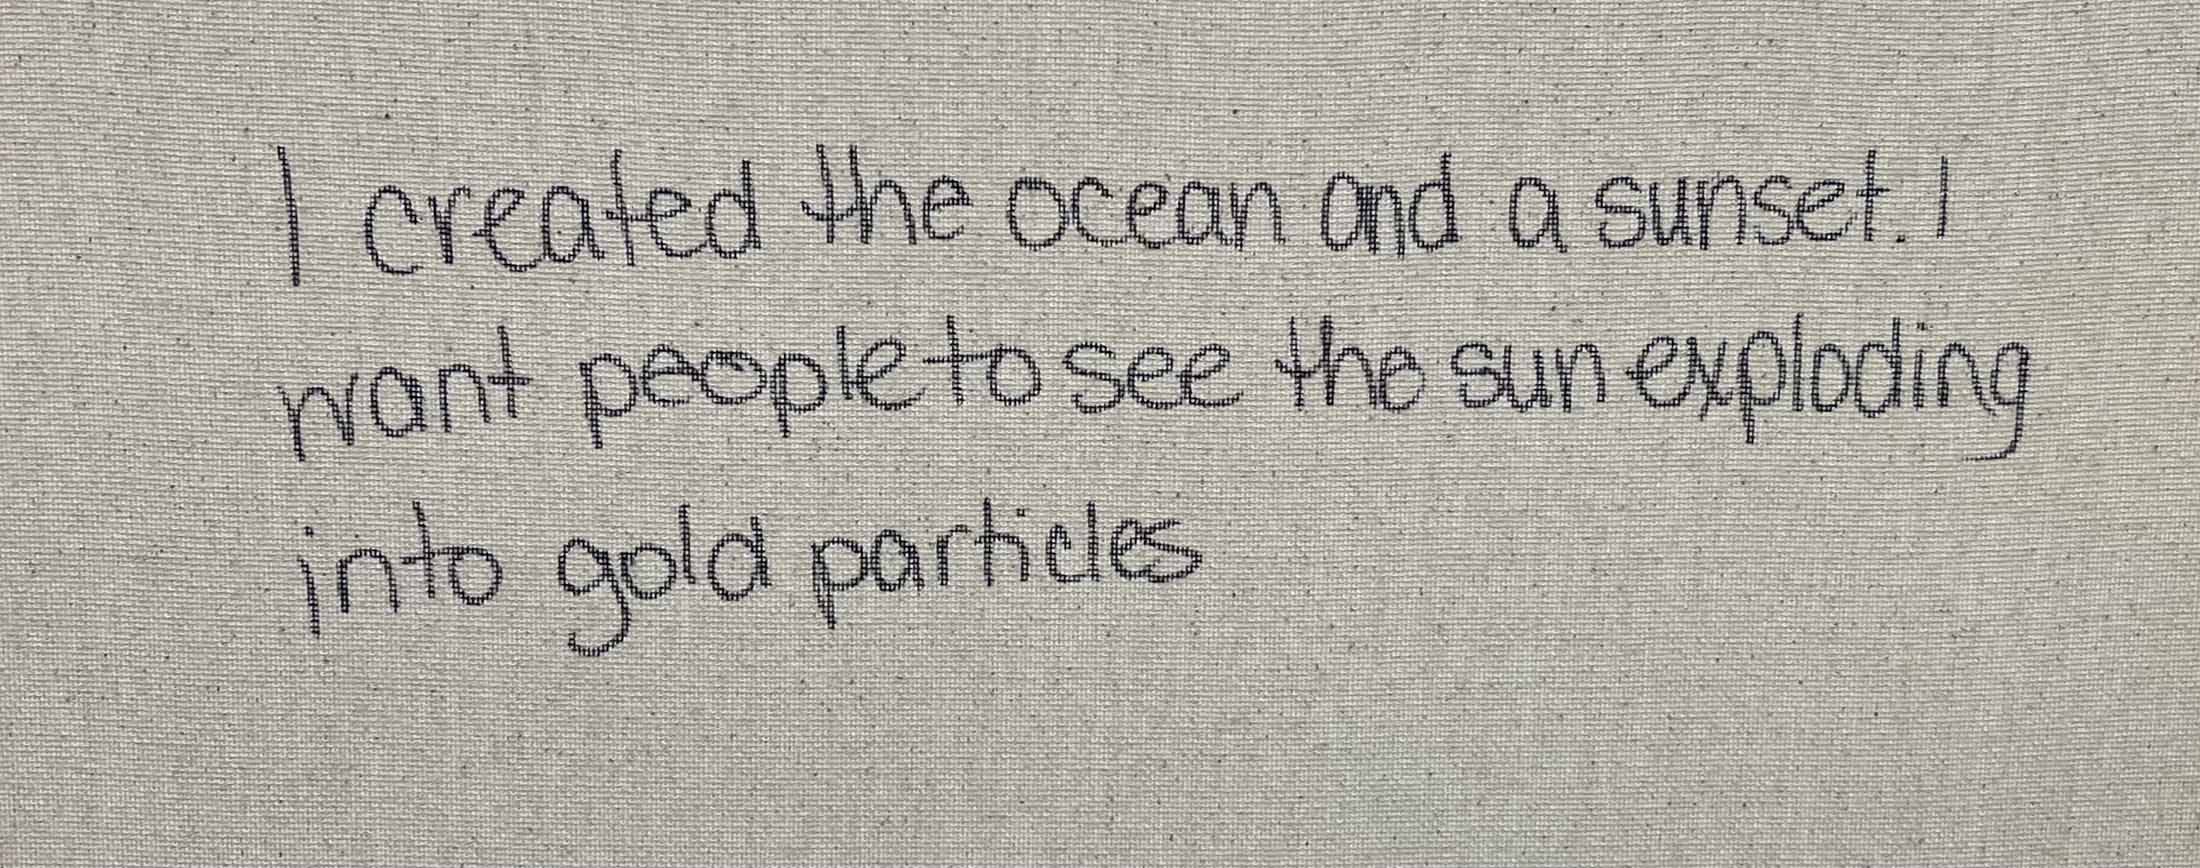 I created the ocean and a sunset. I
want people to see the sun exploding
into gold particles